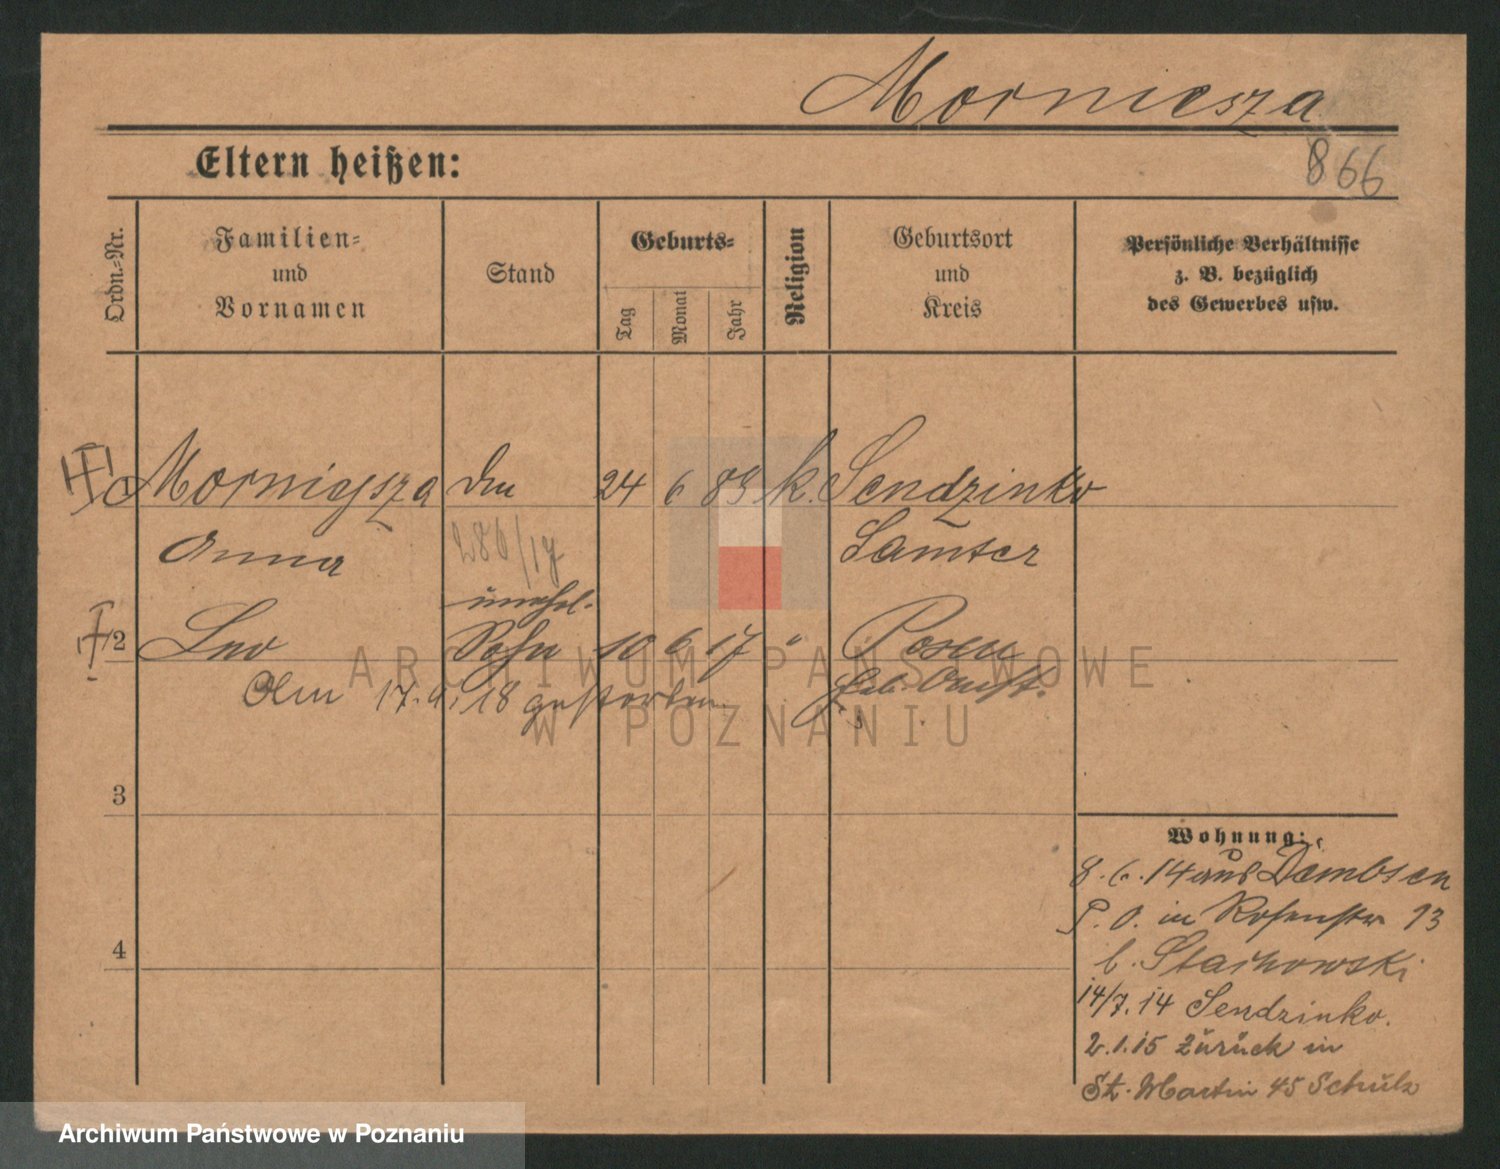 Morniesza
Eltern heißen:
866
Ordn.-Nr.
Familien-
und
Vornamen
Stand
Geburts-
Tag
Monat
Jahr
Religion
Geburtsort
und
Kreis
Persönliche Verhältnisse
z. B. bezüglich
des Gewerbes usw.
Mornigsza
24 6 89 k. Sendzinko
Anna
280/17
Samter
unehel.
2 Leo Sohn 10 6 17 " Posen
Am 17.4.18 gestorben
3
4
Wohnung:
8.6.14 aus Dembsen
P. O. in Rosenstr 13
b. Stachowski
14/7.14 Sendzinko.
2.1.15 zurück in
St. Martin 45 Schulz
ARCHIWUM PAŃSTWOWE
W POZNANIU
Archiwum Państwowe w Poznaniu